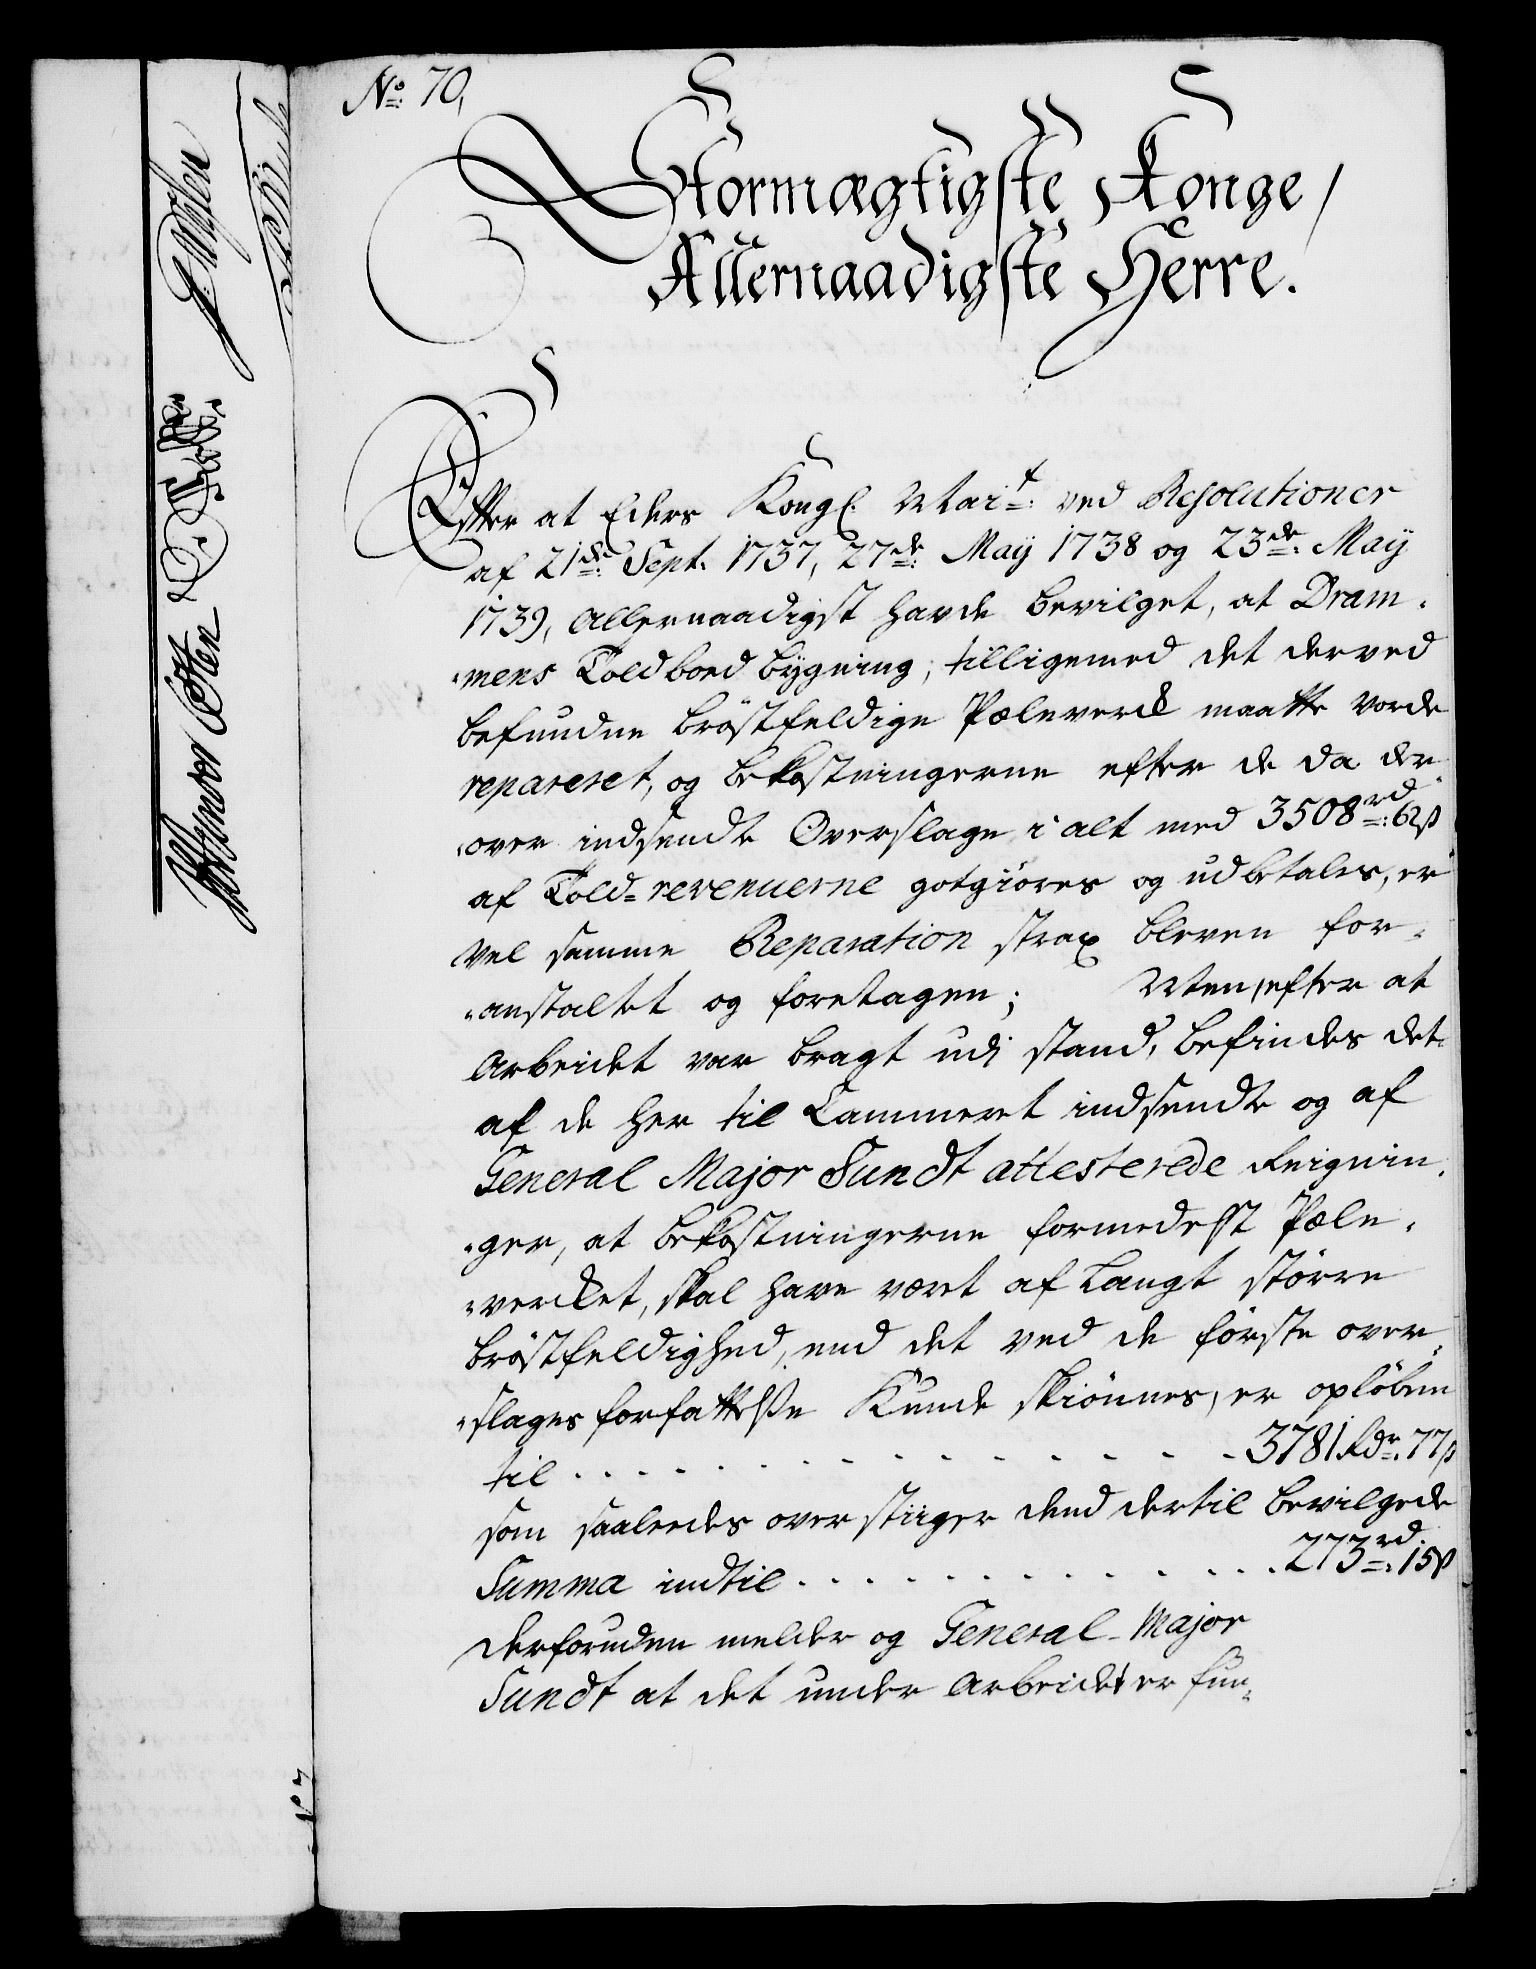 No: 70,
Stormægtigste Konge,
Allernaadigste Herre.
Efter at Eders Kongl. Mait: ved Resolutioner
af 21de: Sept. 1737, 27de: Maÿ 1738 og 23de: Maÿ
1739, allernaadigst havde bevilget, at Dram-
mens Toldboed bÿgning, tilligemed det derved
befundne bröstfeldige Pæleverck maatte vorde
repareret, og bekostningerne efter de da der-
over indsendte Overslage i alt med 3508rd: 62ß
af Told-revenuerne gotgiöres og udbetales, er
vel samme Reparation strax bleven for-
anstaltet og foretagen; Men, efter at
Arbeidet var bragt udi stand, befindes det
af de her til Cammeret indsendte og af
General Major Sundt attesterede Reignin-
ger, at bekostningerne formedelst Pæle-
vercket, skal have været af langt större
bröstfeldighed, end det ved de förste over-
slages forfattelse Kunde skiönnes, er oplöben
til . . . . . . . . . . . . 3781 Rdr. 77ß
som saaledes over stiiger dend dertil bevilgede
Summa indtil . . . . . . . . . . . . 273rd: 15ß
Derforuden melder og General-Major
Sundt at det under Arbeidet er fun-